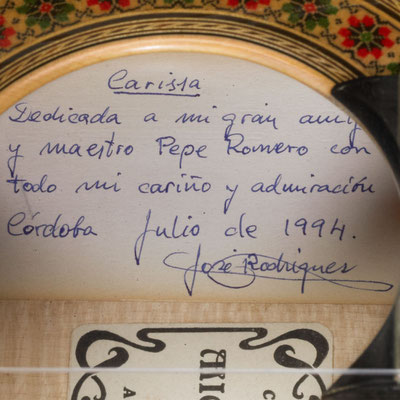 Carissa
Dedicada a mi gran amig
y maestro Pepe Romero con
todo mi cariño y admiración
Córdoba Julio de 1994.
José Rodriguez